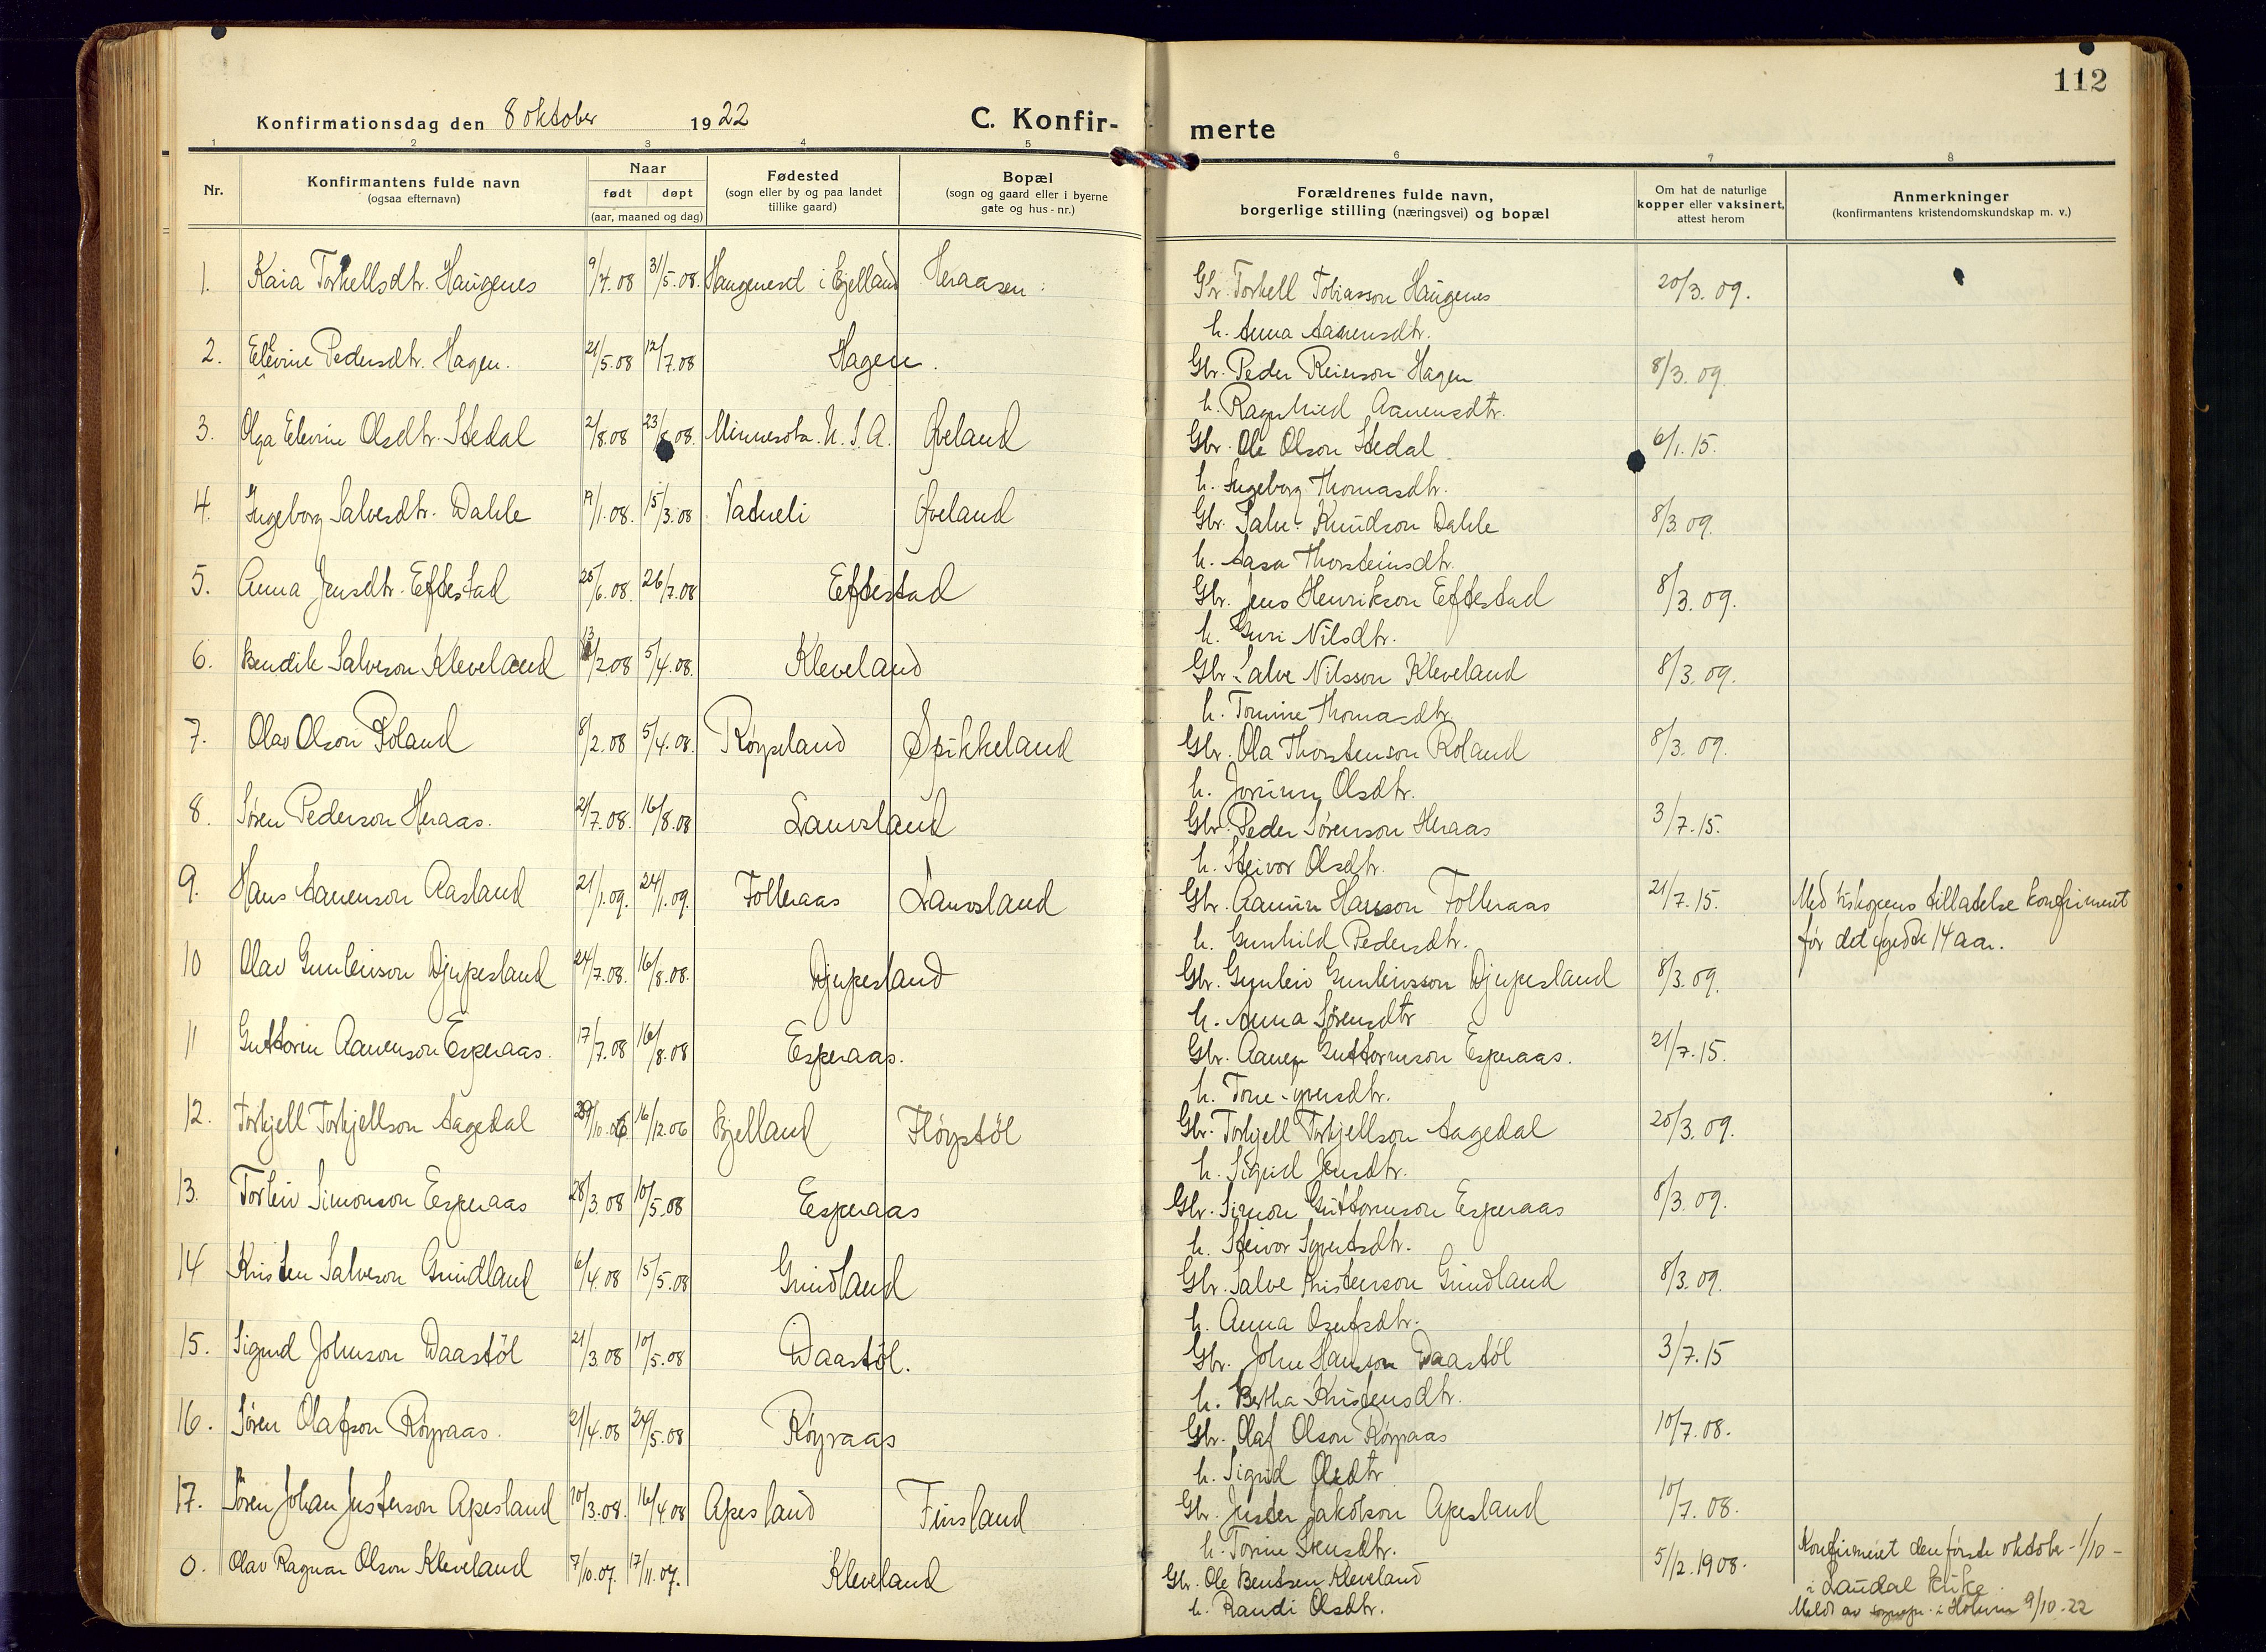 112
Konfirmationsdag den 8 oktober 1922
C. Konfir-
merte
1 2 3 4 5 6 7 8
Nr.
Konfirmantens fulde navn
(ogsaa efternavn)
Naar
født døpt
(aar, maaned og dag)
Fødested
(sogn eller by og paa landet
tillike gaard)
Bopæl
(sogn og gaard eller i byerne
gate og hus-nr.)
Forældrenes fulde navn,
borgerlige stilling (næringsvei) og bopæl
Om hat de naturlige
kopper eller vaksinert,
attest herom
Anmerkninger
(konfirmantens kristendomskundskap m. v.)
1. Kaia Torkellsdtr. Haugenes 9/4.08 31/5.08. i Bjelland Heraasen Gbr. Torkell Tobiasson Haugenes 20/3.09.
h. Anna Aanensdtr.
2. Elevine Pedersdtr. Hagen. 21/5.08 12/7.08 Hagen. Gbr. Peder Reierson Hagen 8/3.09
h. Ragnhild Aanensdtr.
3. Olga Elevine Olsdtr. Stedal 2/8.08 23/8.08. Minnesota. U.S.A. Øveland Gbr. Ole Olson Stedal 6/1.15.
h. Ingeborg Thomasdtr.
4. Ingeborg Salvesdtr. Dahle 19/1.08. 15/3.08 Øveland Gbr. Salve Knudson Dahle 8/3.09.
h. Aasa Thorsteinsdtr.
5. Anna Jensdtr. Eftestad 25/6.08. 26/7.08 Eftestad Gbr. Jens Henrikson Eftestad 8/3.09.
h. Guri Nilsdtr.
6. Bendik Salveson Kleveland 13/2.08 5/4.08. Kleveland Gbr. Salve Nilsson Kleveland 8/3.09.
h. Tomine Thomasdtr.
7. Olav Olson Roland 8/2.08 5/4.08. Røyseland Spikkeland Gbr. Ola Thorstenson Roland 8/3.09.
h. Jorunn Olsdtr.
8. Søren Pederson Heraas. 21/7.08. 16/8.08 Lauvsland Gbr. Peder Sørenson Heraas 3/7.15.
h. Steivor Olsdtr.
9. Hans Aanenson Aasland 21/1.09. 24/1.09. Folleraas Lauvsland Gbr. Aanen Hansson Folleraas 21/7.15. Med biskopens tillatelse konfirmert
h. Gunhild Pedersdtr. før det fyldte 14 aar.
10 Olav Gunleivson Djupesland 24/7.08. 16/8.08. Djupesland Gbr. Gunleiv Gunleivsson Djupesland 8/3.09.
h. Anna Sørensdtr
11 Guttorm Aanenson Esperaas. 17/7.08 16/8.08 Esperaas. Gbr. Aanen Guttormson Esperaas. 21/7.15.
h. Tone
12. Torkjell Torkjellson Aagedal 29/10.06 16/12.06 Bjelland Fløystøl Gbr. Torkjell Torkjellson Aagedal 20/3.09.
h. Sigrid Jensdtr.
13. Torleiv Simonson Esperaas 28/3.08 10/5.08 Esperaas Gbr. Simon Guttormson Esperaas 8/3.09.
h. Steivor Syvertsdtr.
14 Kristen Salveson Grindland 6/4.08 15/5.08 Grindland Gbr. Salve Kristenson Grindland 8/3.09.
h. Anna Osufsdtr.
15. Sigurd Johnson Daastøl 21/3.08 10/5.08 Daastøl. Gbr. John Hansson Daastøl 3/7.15
h. Bertha Kristensdtr.
16. Søren Olafson Røyraas. 21/4.08 24/5.08 Røyraas Gbr. Olaf Olson Røyraas 10/7.08.
h. Sigrid Olsdtr
17. Søren Johan Justerson Apesland 10/3.08. 16/4.08 Apesland Finsland Gbr. Juster Jakobson Apesland 10/7.08.
h. Torine
0. Olav Ragnar Olson Kleveland 7/10.07. 17/11.07. Kleveland Gbr. Ole Bentsen Kleveland 5/12.1908. Konfirmert den første oktober - 1/10 -
h. Randi Olsdtr. i Laudal kirke.
Meldt av i Holum 9/10-22